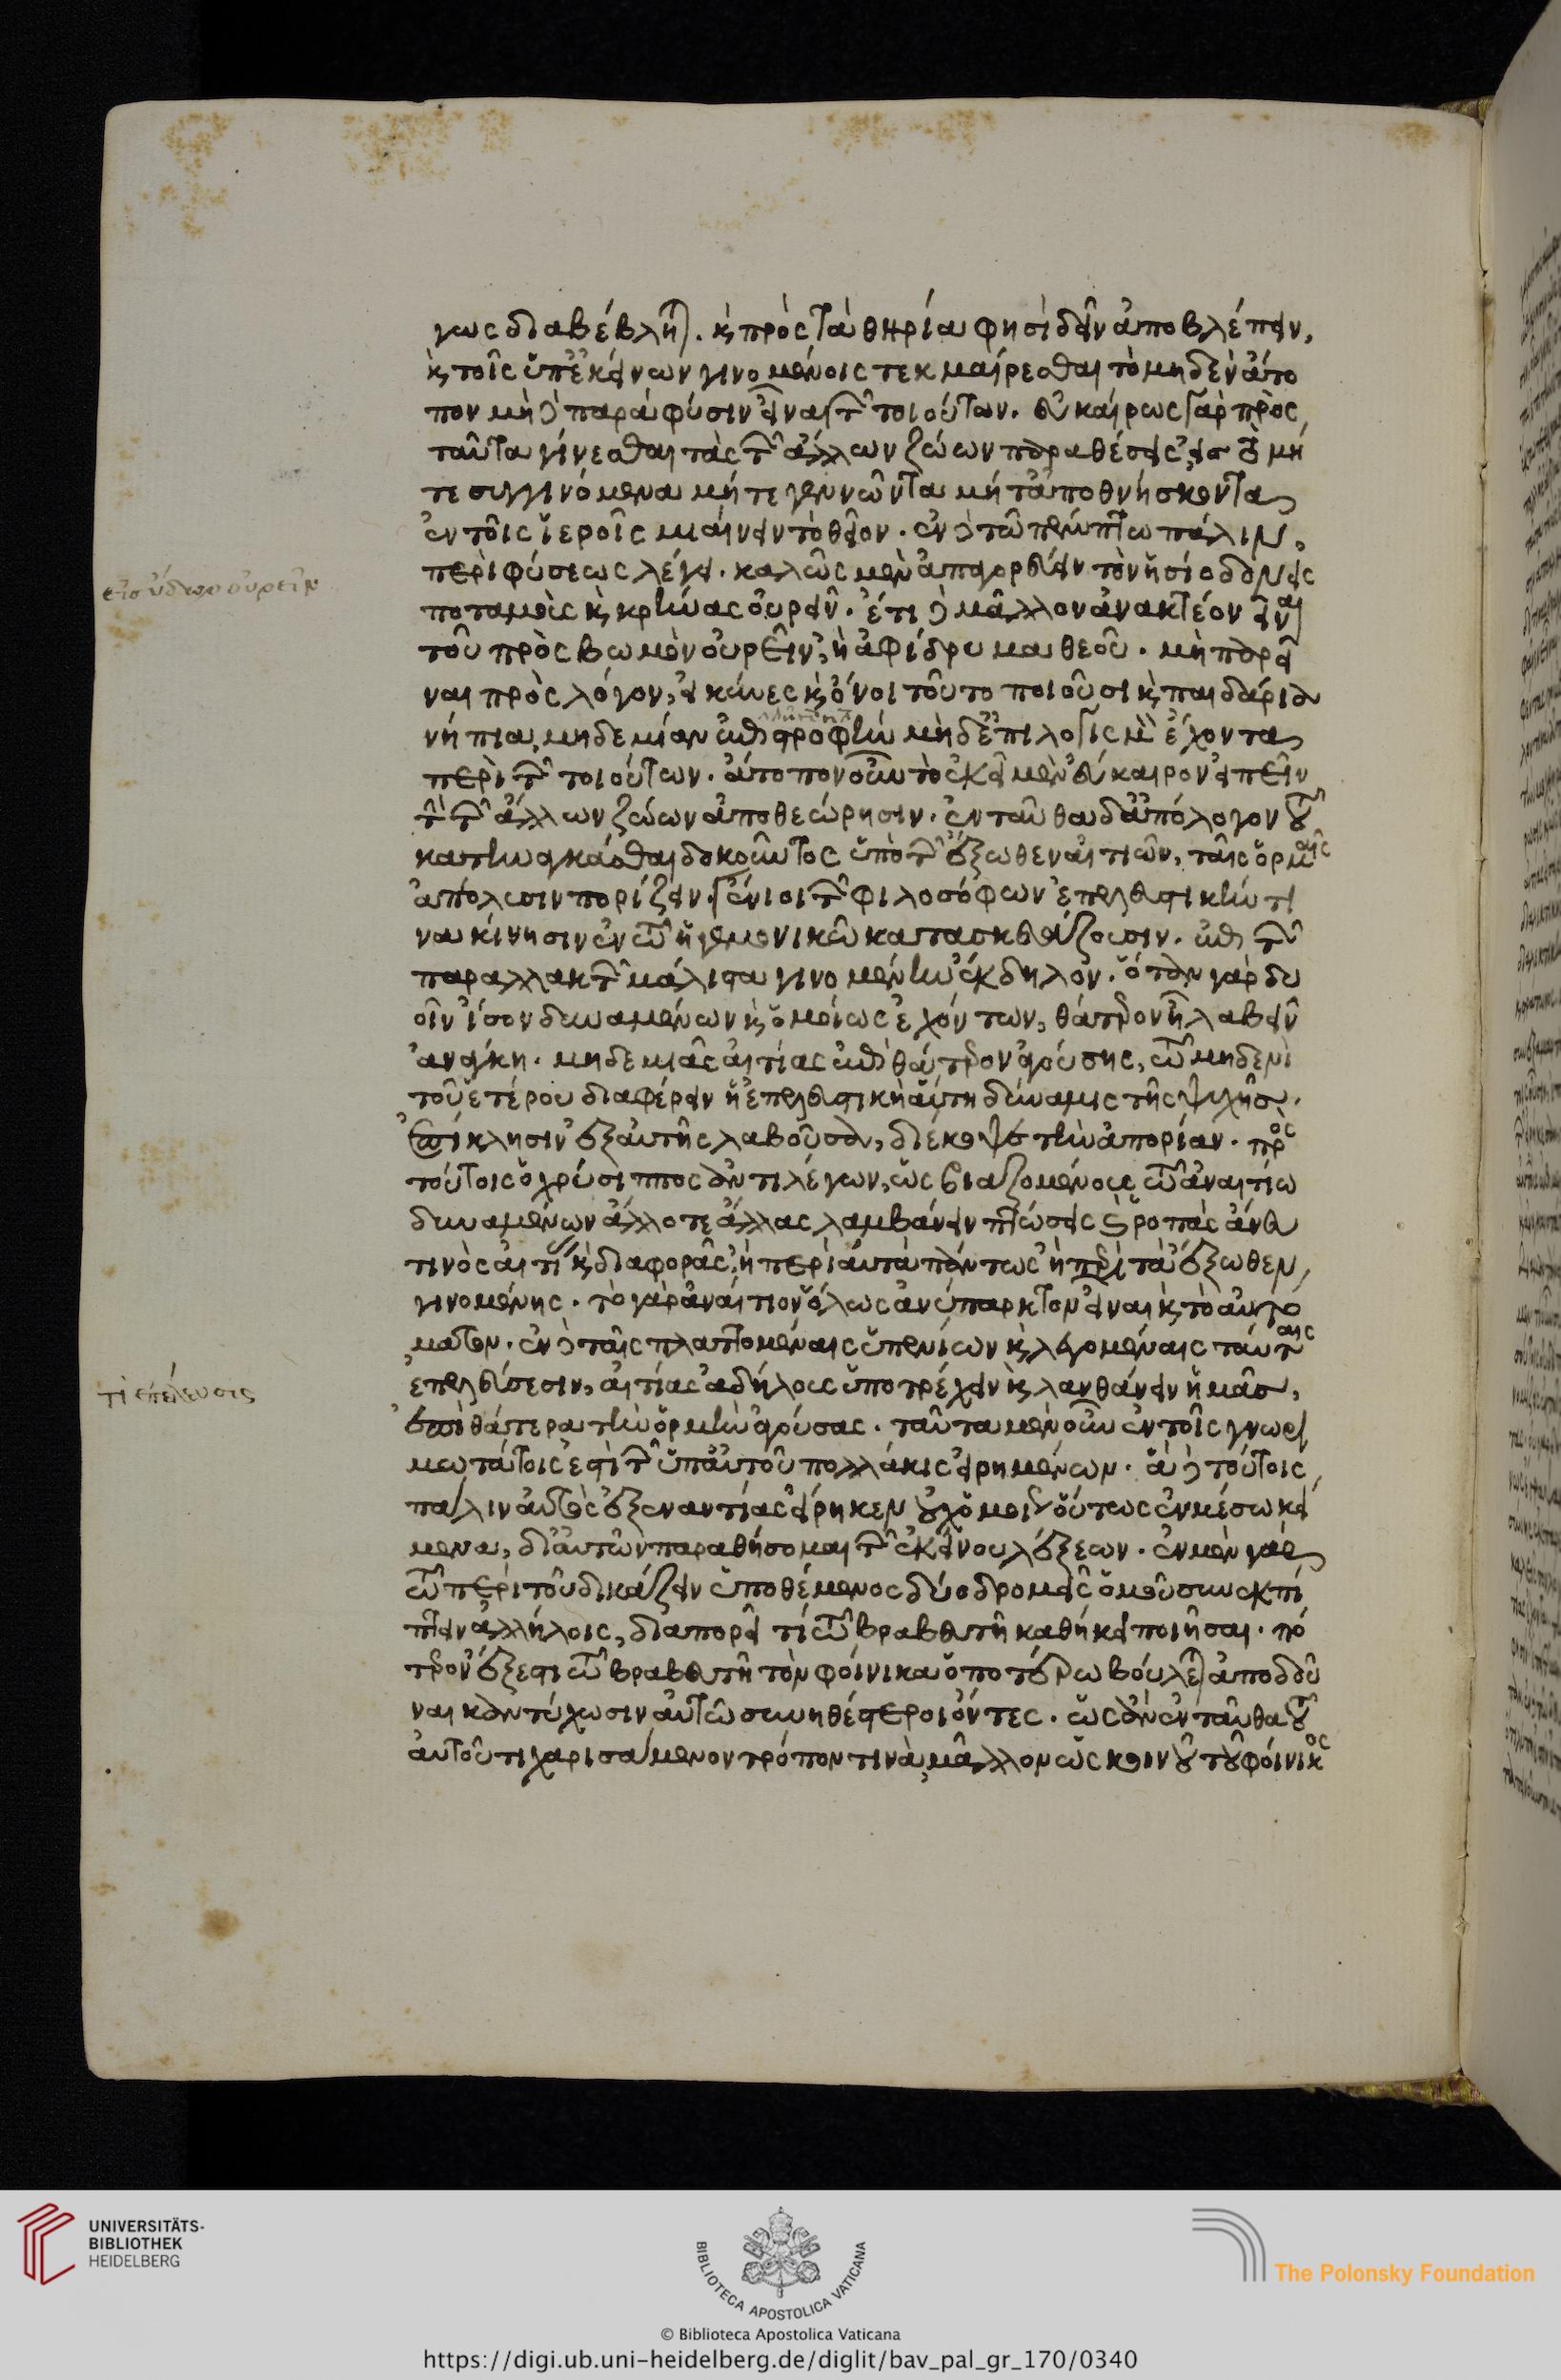 γως διαβέβληται. κ πρὸς τὰ θηρία φησὶ δεῖν ἀποβλέπειν,
κ τοῖς ὑπ' ἐκείνων γινομένοις τεκμαίρεσθαι τὸ μηδὲν ἄτο
πον μὴ δὲ παρὰ φύσιν εἶναι τῶν τοιούτων. εὐκαίρως γὰρ πρὸς
ταῦτα γίνεσθαι τὰς τῶν ἄλλων ζώων παραθέσεις, εἰς τὸ μή
τε συγγινόμενα μήτε γεννῶντα μήτ' ἀποθνήσκοντα
ἐν τοῖς ἱεροῖς μιαίνειν τὸ θεῖον. ἐν δὲ τῶ πέμπτω πάλιν,
περὶ φύσεως λέγει. καλῶς μὲν ἀπαγορεύειν τὸν ἡσίοδον εἰς
εἰς ὕδωρ οὐρεῖν
ποταμοὺς κ κρήνας οὐρεῖν. ἔτι δὲ μᾶλλον ἀνακτέον εἶναι
τοῦ πρὸς βωμὸν οὐρεῖν, ἢ ἀφίδρυμα θεοῦ. μὴ παρεῖ
ναι πρὸς λόγον, εἰ κύνες κ ὄνοι τοῦτο ποιοῦσι κ παιδάρια
νήπια, μηδεμίαν ἐπιστροφὴν μὴδ' ἐπιλογισμὸν ἔχοντα
περὶ τῶν τοιούτων. ἄτοπον οὖν τὸ ἐκεῖ μὲν εὔκαιρον εἰπεῖν
τὴν τῶν ἄλλων ζώων ἀποθεώρησιν. ἐνταῦθα δ' ἀπόλογον τοῦ
κατηναγκάσθαι δοκοῦντος ὑπὸ τῶν ἔξωθεν αἰτιῶν, ταῖς ὁρμαῖς
ἀπόλυσιν πορίζειν. ἔνιοι τῶν φιλοσόφων ἐπελευστικήν τι
να κίνησιν ἐν τῶ ἡγεμονικῶ κατασκευάζουσιν. ἐπὶ τῶν
παραλλακτῶν μάλιστα γινομένην ἔκδηλον. ὅταν γὰρ δυ
οῖν ἴσον δυναμένων κ ὁμοίως ἐχόντων, θάτερον ἦ λαβεῖν
ἀνάγκη. μηδεμιᾶς αἰτίας ἐπὶ θάτερον ἀγούσης, τῶ μηδενὶ
τοῦ ἑτέρου διαφέρειν ἡ ἐπελευστικὴ αὕτη δύναμις τῆς ψυχῆς.
ἐπίκλησιν ἐξ αὐτῆς λαβοῦσα, διέκοψε τὴν ἀπορίαν. πρὸς
τούτοις ὁ χρύσιππος ἀντιλέγων, ὡς βιαζομένους τῶ ἀναιτίω
δυναμένων ἄλλοτε ἄλλας λαμβάνειν πτώσεις κ ῥοπὰς ἄνευ
τινὸς αἰτίας κ διαφορᾶς, ἢ περὶ αὐτὰ πάντως ἢ περὶ τὰ ἔξωθεν
γινομένης. τὸ γὰρ ἀναίτιον ὅλως ἀνύπαρκτον εἶναι κ τὸ αὐτό
ματον. ἐν δὲ ταῖς πλαττομέναις ὑπ' ἐνίων κ λεγομέναις ταύταις
τί ἐπέλευσις
ἐπελεύσεσιν, αἰτίας ἀδήλους ὑποτρέχειν κ λανθάνειν ἡμᾶς,
ἐπὶ θάτερα τὴν ὁρμὴν ἀγούσας. ταῦτα μὲν οὖν ἐν τοῖς γνωρι
μωτάτοις ἐστὶ τῶν ὑπ' αὐτοῦ πολλάκις εἰρημένων. ἃ δὲ τούτοις
πάλιν αὐτὸς ἐξ ἐναντίας εἴρηκεν οὐχ ὅμοια οὕτως ἐν μέσω κεί
μενα, δι' αὐτῶν παραθήσομαι τῶν ἐκείνου λέξεων. ἐν μὲν γὰρ
τῶ περὶ τοῦ δικάζειν ὑποθέμενος δύο δρομεῖς ὁμοῦ συνεκπί
πτειν ἀλλήλοις, διαπορεῖ τί τῶ βραβευτῆ καθήκει ποιῆσαι. πό
τερον ἔξεστι τῶ βραβευτῆ τὸν φοίνικα ὁποτέρω βούλεται ἀποδοῦ
ναι καὶ ἂν τύχωσιν αὐτῶ συνηθέστεροι ὄντες. ὡς ἂν ἐνταῦθα τοῦ
αὐτοῦ τι χαρισάμενον τρόπον τινὰ, μᾶλλον ὡς κοινοῦ τοῦ φοίνικος
UNIVERSITÄTS-
BIBLIOTHEK
HEIDELBERG
BIBLIOTECA APOSTOLICA VATICANA
The Polonsky Foundation
© Biblioteca Apostolica Vaticana
https://digi.ub.uni-heidelberg.de/diglit/bav_pal_gr_170/0340